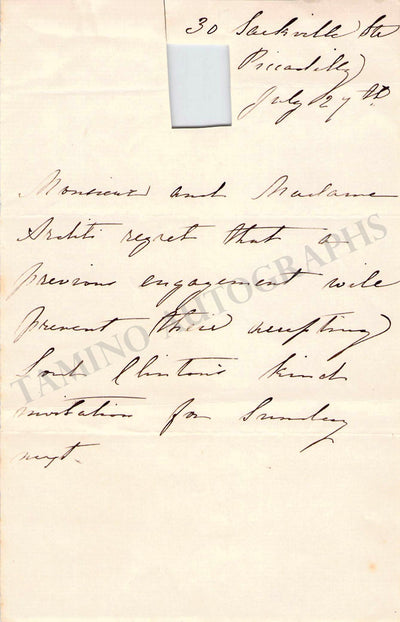 30 Sackville St
Piccadilly
July 27th.
Monsieur and Madame
Arditi regret that a
previous engagement will
prevent their accepting
Lord Clinton's kind
invitation for Sunday
next.
TAMINO AUTOGRAPHS